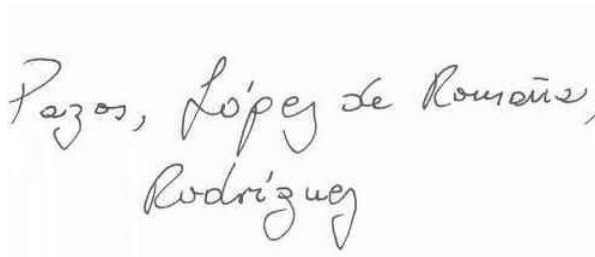 Pazos, López de Romaña,
Rodríguez